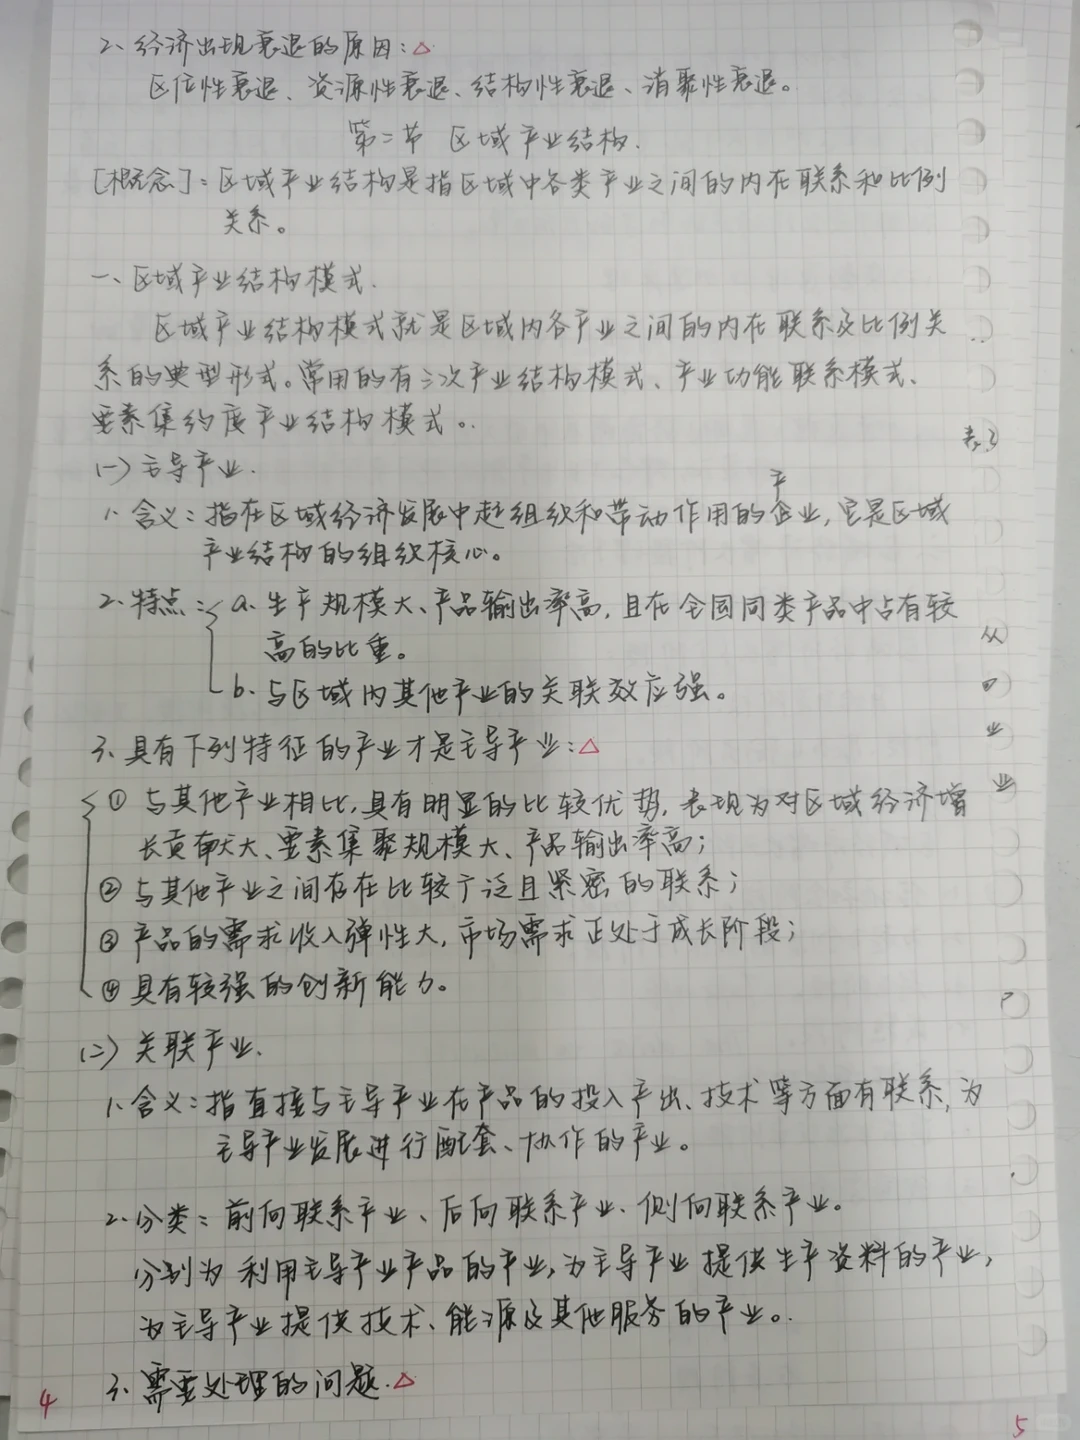 2、经济出现衰退的原因：△
区位性衰退、资源性衰退、结构性衰退、消聚性衰退。
第二节 区域产业结构.
[概念]：区域产业结构是指区域中各类产业之间的内在联系和比例
关系。
一、区域产业结构模式.
区域产业结构模式就是区域内各产业之间的内在联系及比例关
系的典型形式。常用的有三次产业结构模式、产业功能联系模式、
要素集约度产业结构模式。
(一)主导产业.
产
1、含义：指在区域经济发展中起组织和带动作用的企业,它是区域
产业结构的组织核心。
2、特点：a、生产规模大、产品输出率高,且在全国同类产品中占有较
高的比重。
b、与区域内其他产业的关联效应强。
3、具有下列特征的产业才是主导产业：△
① 与其他产业相比,具有明显的比较优势,表现为对区域经济增
长贡献大、要素集聚规模大、产品输出率高；
② 与其他产业之间存在比较广泛且紧密的联系；
③ 产品的需求收入弹性大,市场需求正处于成长阶段；
④ 具有较强的创新能力。
(二)关联产业.
1、含义：指直接与主导产业在产品的投入产出、技术等方面有联系,为
主导产业发展进行配套、协作的产业。
2、分类：前向联系产业、后向联系产业、侧向联系产业。
分别为利用主导产业产品的产业,为主导产业提供生产资料的产业,
为主导产业提供技术、能源及其他服务的产业。
3、需要处理的问题.△
4
5